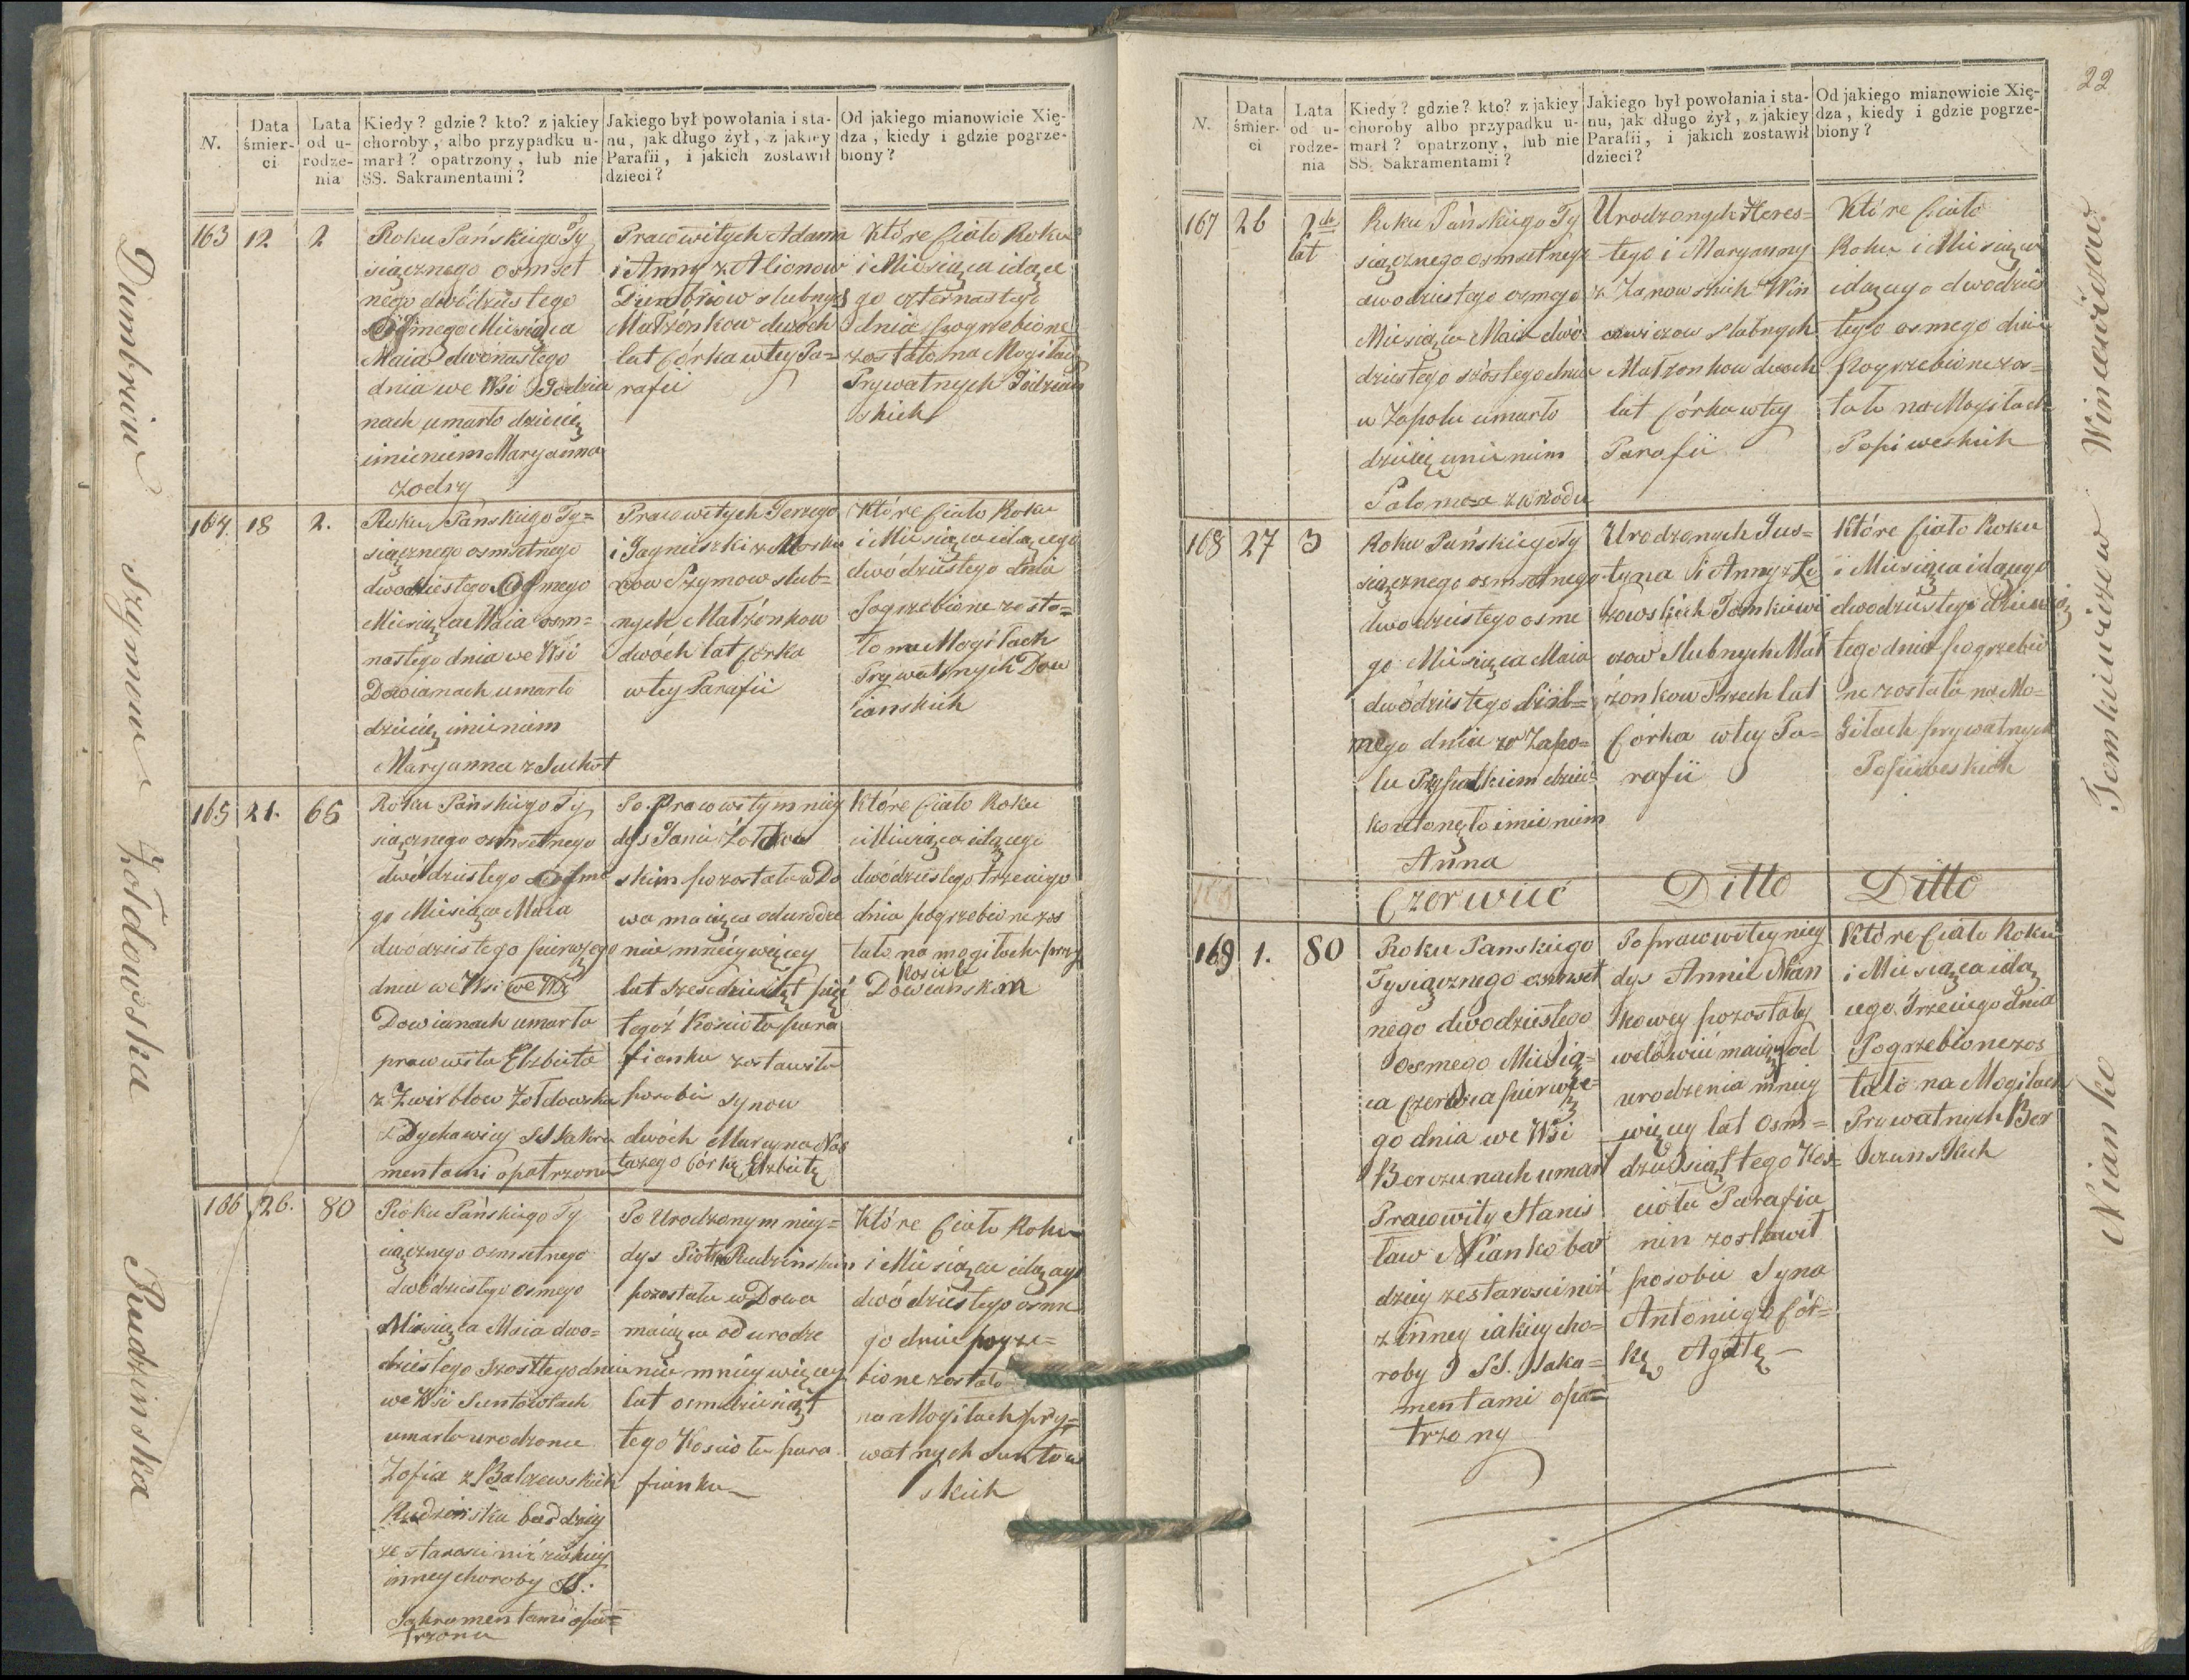 N.
Data śmier-ci
Lata od u-rodze-nia
Kiedy? gdzie? kto? z jakiey
choroby, albo przypadku u-
marł? opatrzony, lub nie
SS. Sakramentami?
Jakiego był powołania i sta-
nu, jak długo żył, z jakiey
Parafii, i jakich zostawił
dzieci?
Od jakiego mianowicie Xię-
dza, kiedy i gdzie pogrze-
biony?
Dumbriu
163 12 2
Roku Pańskiego Ty
siącznego osmset
nego dwódziestego
osmego Miesiąca
Maia dwónastego
dnia we Wsi Godzia
nach umarło dziecię
imieniem Maryanna
z odry
Pracowitych Adama
i Anny z Alionow
Dumbriow slubnych
Małżónkow dwóch
lat Córka w tey Pa=
rafii
Które Ciało Roku
i Miesiąca idące
go czternastego
dnia pogrzebione
zostało na Mogiłach
Prywatnych Godzian
skich
Szymow
164. 18 2.
Roku Pańskiego Ty=
siącznego osmsetnego
dwodziestego Osmego
Miesiąca Maia osm=
nastego dnia we Wsi
Dowianach umarło
dziecię imieniem
Maryanna z Suchot
Pracowitych Jerzego
i Jagnieszki z Mosku
row Szymow slub=
nych Małżónkow
dwóch lat Córka
w tey Parafii
Które Ciało Roku
i Miesiąca idącego
dwódziestego dnia
Pogrzebione zosta=
ło na Mogiłach
Prywatnych Dow
ianskich
Żołdowska
165 21. 65
Roku Pańskiego Ty
siącznego osmsetnego
dwódziestego Osme
go Miesiąca Maia
dwódziestego pierwszego
dnia we Wsi we Wsi
Dowianach umarła
pracowita Elzbieta
z Zwirblow Żołdowska
z Dychawicy SS Sakra
mentami opatrzona
Po Pracowitym niey
dys Janie Żołdow
skim pozostała w Do
wa maiąca od urodze
nia mniey więcey
lat szescdziesiąt pięć
tegoż Koscioła para
fianka zostawiła
posobie Synow
dwóch Marcyna Nas
tazego Córkę Elzbietę
Które Ciało Roku
i Miesiąca idącego
dwódziestego trzeciego
dnia pogrzebione zos
tało na mogiłach przy
Kosciele
Dowianskim
Rudzinska
166 26. 80
Roku Pańskiego Ty
siącznego osmsetnego
dwódziestego osmego
Miesiąca Maia dwo=
dziestego szostego dnia
we Wsi Suntowtach
umarła urodzona
Zofia z Balcewskich
Rudzinska bardziey
ze starosci niż z iakiey
inney choroby SS:
Sakramentami opa=
trzona
Po Urodzonym niey=
dys Piotrze Rudzinskim
pozostała w Dowa
maiąca od urodze
nia mniey więcey
lat osmdziesiąt
tego Koscioła para
fianka
Które Ciało Roku
i Miesiąca idącego
dwódziestego osme
go dnia pogrze=
bione zostało
na Mogiłach pry=
watnych Suntow
skich
22
N.
Data śmier-ci
Lata od u-rodze-nia
Kiedy? gdzie? kto? z jakiey
choroby albo przypadku u-
marł? opatrzony, lub nie
SS. Sakramentami?
Jakiego był powołania i sta-
nu, jak długo żył, z jakiey
Parafii, i jakich zostawił
dzieci?
Od jakiego mianowicie Xię-
dza, kiedy i gdzie pogrze-
biony?
167 26 2ch lat
Roku Pańskiego Ty
siącznego osmsetnego
dwodziestego osmego
Miesiąca Maia dwó
dziestego szóstego dnia
w Zapolu umarło
dziecię imieniem
Salomea z wrzodu
Urodzonych Heres=
tego i Maryanny
z Janowskich Win
cowiczow slubnych
Małżonkow dwoch
lat Córka w tey
Parafii
Które Ciało
Roku i Miesiąca
idącego dwodzies
tego osmego dnia
pogrzebione zos=
tało na Mogiłach
Popiweskich
168 27 3
Roku Pańskiego Ty
siącznego osmsetnego
dwodziestego osme
go Miesiąca Maia
dwódziestego siod=
mego dnia w Zapo=
lu Przypadkiem dziec
ko utonęło imieniem
Anna
Urodzonych Jus=
tyna i Anny z Le
zowskich Tomkiewi
czow Slubnych Mał
żonkow Trzech lat
Córka w tey Pa=
rafii
Które Ciało Roku
i Miesiąca idącego
dwodziestego Dziewią
tego dnia pogrzebio
ne zostało na Mo=
giłach prywatnych
Popiweskich
Tomkiewiczow
Czerwiec Ditto Ditto
169 1. 80
Roku Panskiego
Tysiącznego osmset
nego dwodziestego
osmego Miesią=
ca Czerwca pierwsze=
go dnia we Wsi
Berzunach umarł
Pracowity Stanis
ław Nianko bar
dziey ze starosci niż
z inney iakiey cho=
roby SS. Saka=
mentami opa=
trzony
Po pracowitey niey
dys Annie Nian
kowey pozostały
wdowiec maiący od
urodzenia mniey
więcey lat Osm=
dziesiąt tego Kos=
cioła Parafia
nin zostawił
posobie Syna
Antoniego Cór=
kę Agatę
Które Ciało Roku
i Miesiąca idą
cego Trzeciego dnia
Pogrzebione zos
tało na Mogiłach
Prywatnych Ber
zunskich
Nianko